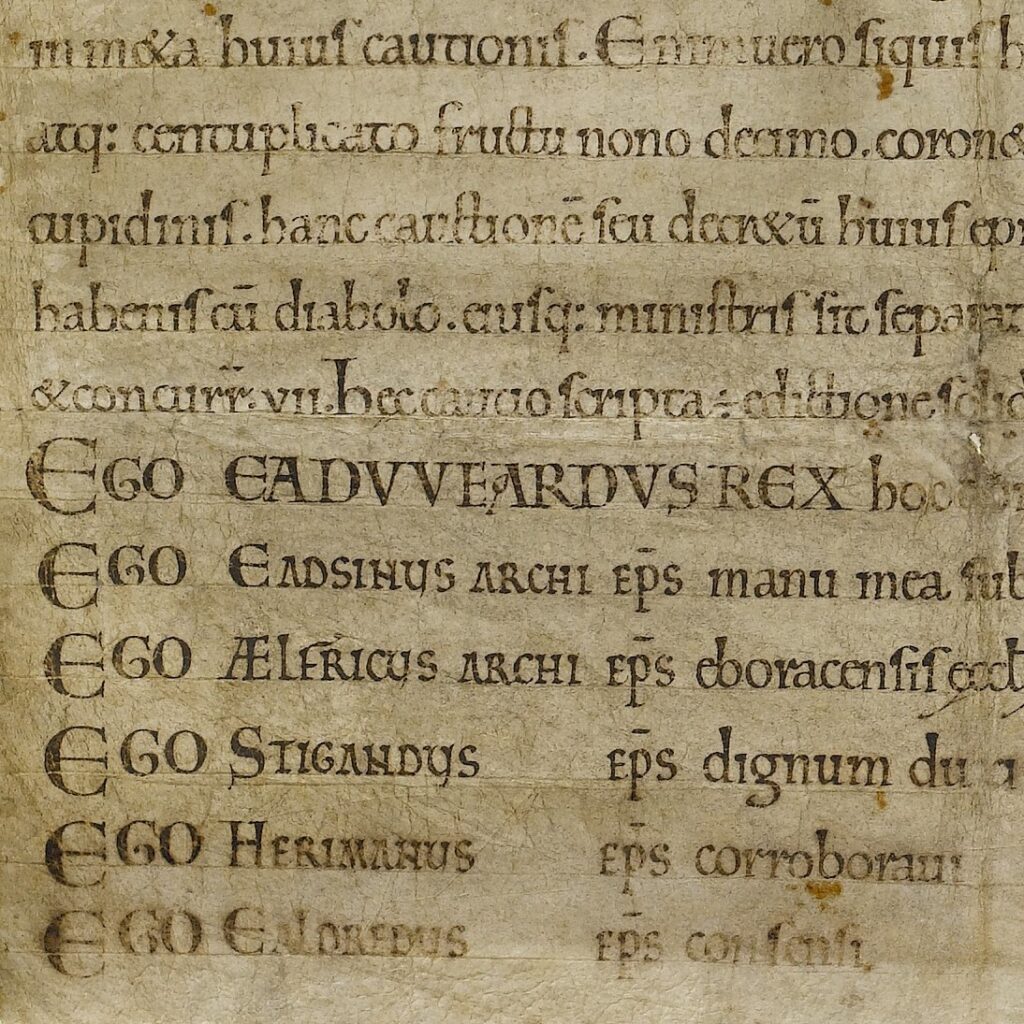 in mea huius cautionis. Enim uero siquis h
atq: centuplicato fructu nono decimo. coron&
cupidinis. hanc cauctionē seu decr&ū huius epi
habenis cū diabolo. eiusq: ministris sit separat
& concurr̄. vii. hęc caucio scripta ÷ edictione
EGO EADVVEARDVS REX hoc
EGO EADSINUS ARCHI EP̄S manu mea sub
EGO ÆLFRICUS ARCHI EP̄S eboracensis
EGO STIGANDUS EP̄S dignum
EGO HERIMANUS EP̄S corroboraui
EGO EALDREDUS EP̄S consensi.